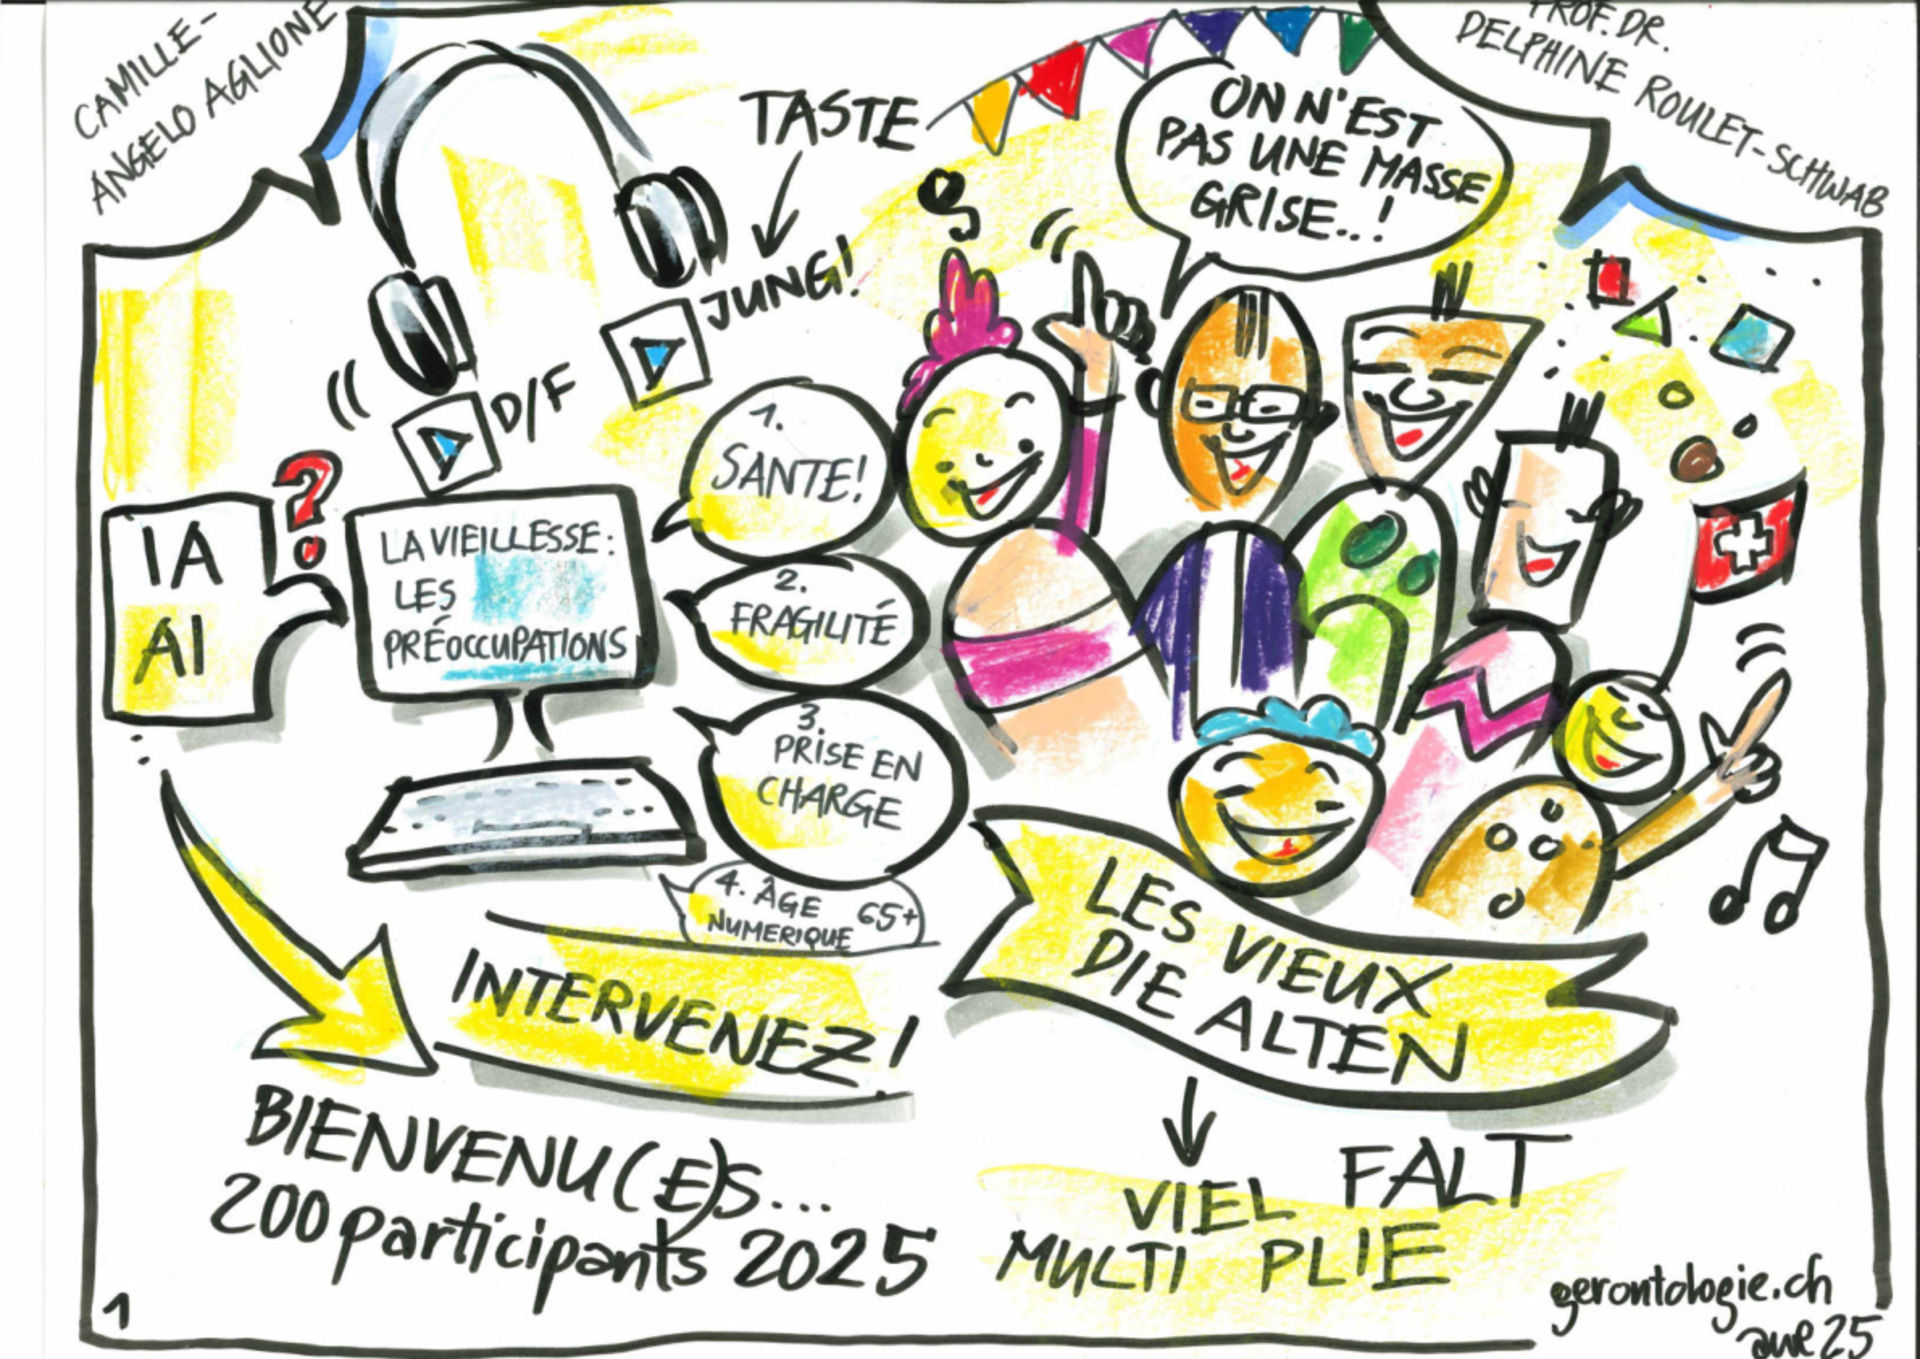 CAMILLE-
ANGELO AGLIONE
PROF. DR.
DELPHINE ROULET-SCHWAB
TASTE
JUNG!
D/F
ON N'EST
PAS UNE MASSE
GRISE..!
IA
AI
?
LA VIEILLESSE:
LES
PRÉOCCUPATIONS
1.
SANTE!
2.
FRAGILITÉ
3.
PRISE EN
CHARGE
4. ÂGE 65+
NUMERIQUE
INTERVENEZ!
LES VIEUX
DIE ALTEN
BIENVENU(E)S...
200 participants 2025
VIEL FALT
MULTI PLIE
1
gerontologie.ch
awe 25